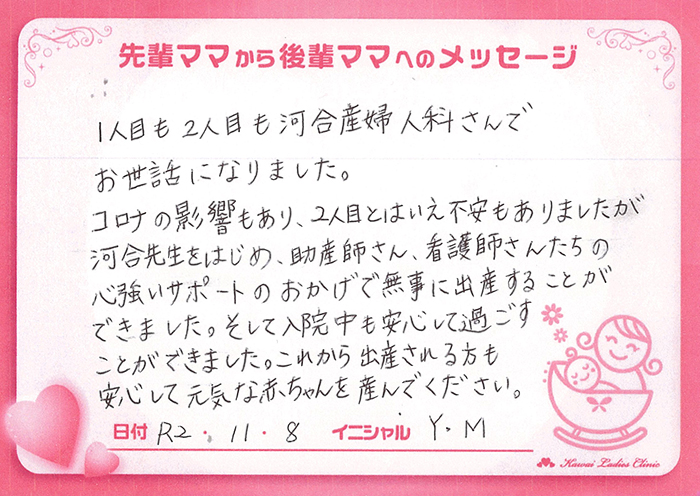 先輩ママから後輩ママへのメッセージ
1人目も2人目も河合産婦人科さんで
お世話になりました。
コロナの影響もあり、2人目とはいえ不安もありましたが
河合先生をはじめ、助産師さん、看護師さんたちの
心強いサポートのおかげで無事に出産することが
できました。そして入院中も安心して過ごす
ことができました。これから出産される方も
安心して元気な赤ちゃんを産んでください。
日付 R2・11・8 イニシャル Y・M
Kawai Ladies Clinic